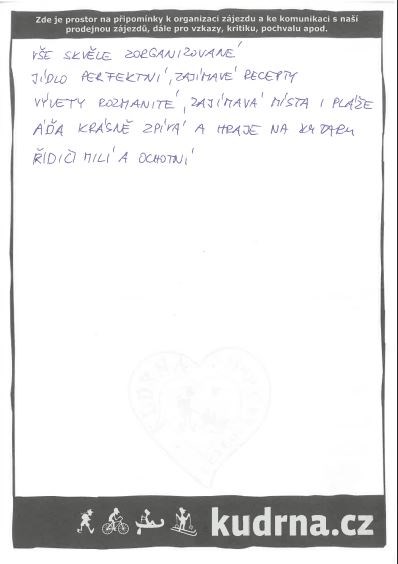 Zde je prostor na připomínky k organizaci zájezdu a ke komunikaci s naší
prodejnou zájezdů, dále pro vzkazy, kritiku, pochvalu apod.
VŠE SKVĚLE ZORGANIZOVANÉ
JÍDLO PERFEKTNÍ, ZAJÍMAVÉ RECEPTY
VÝVETY ROZMANITÉ, ZAJÍMAVÁ MÍSTA I PLÁŽE
AĎA KRÁSNĚ ZPÍVÁ A HRAJE NA KYTARU
ŘIDIČI MILÍ A OCHOTNÍ
kudrna.cz